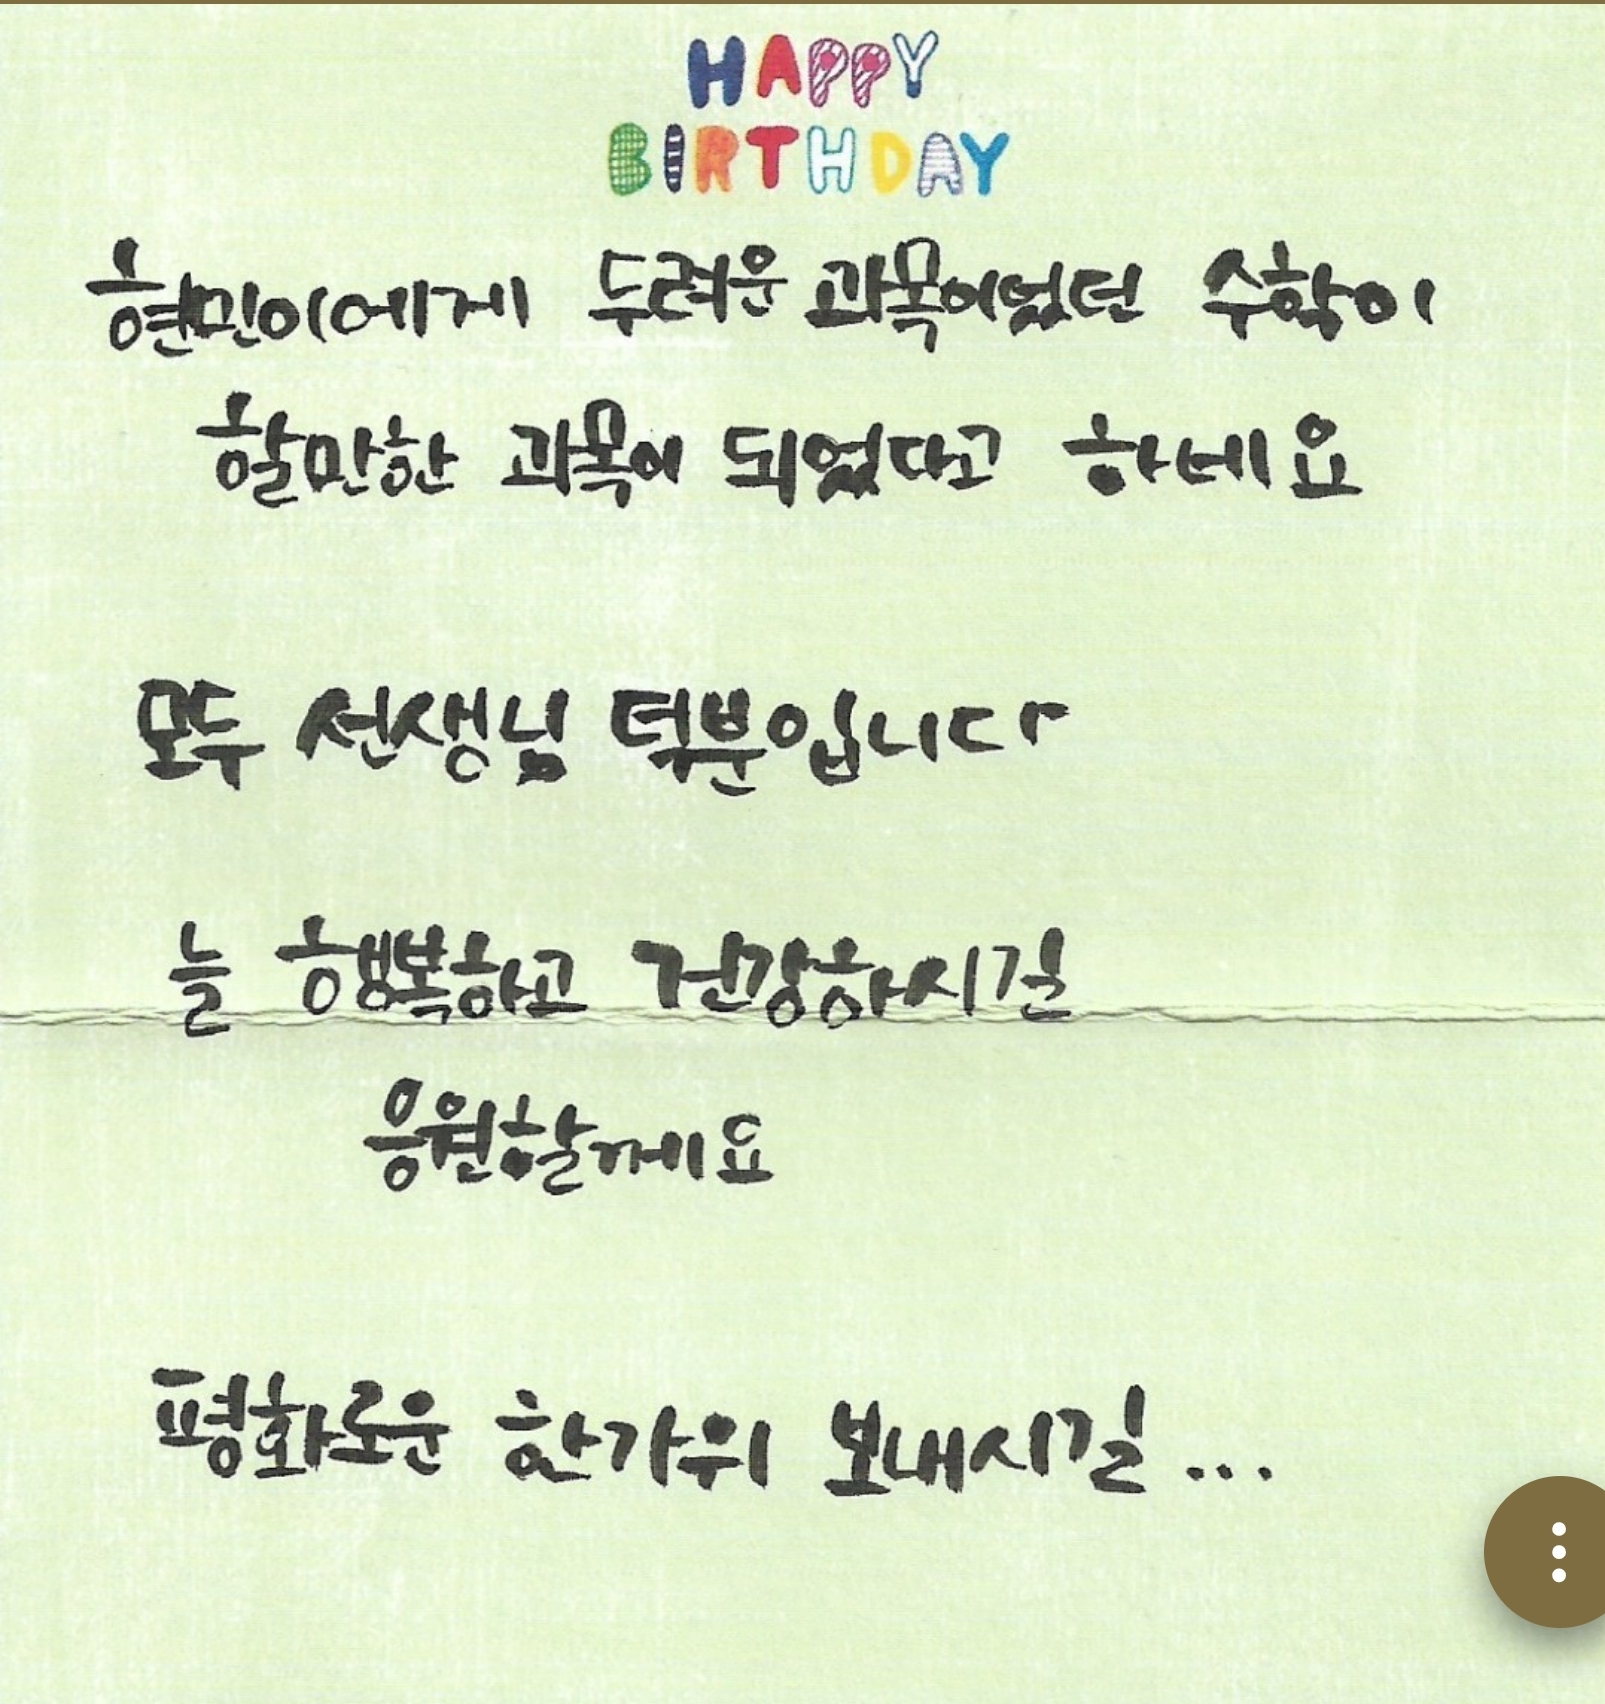 HAPPY
BIRTHDAY
현민이에게 두려운 과목이었던 수학이
할만한 과목이 되었다고 하네요
모두 선생님 덕분입니다
늘 행복하고 건강하시길
응원할께요
평화로운 한가위 보내시길...